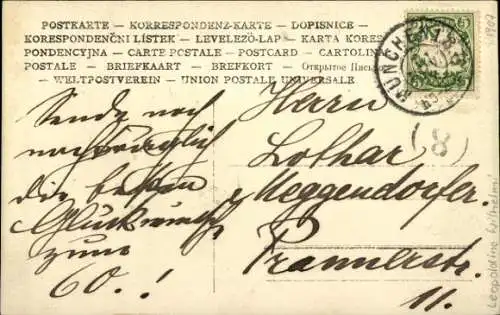 POSTKARTE — KORRESPONDENZ-KARTE — DOPISNICE —
KORESPONDENČNI LÍSTEK — LEVELEZŐ-LAP — KARTA KORES-
PONDENCYJNA — CARTE POSTALE — POSTCARD — CARTOLINA
POSTALE — BRIEFKAART — BREFKORT — Открытое Письмо
— WELTPOSTVEREIN — UNION POSTALE UNIVERSALE —
MÜNCHEN
Sende noch
nachträglich
die besten
Glückwünsche
zum
60.!
Herrn
Lothar
Meggendorfer.
Prannerstr.
11.
(8)
Leopoldine